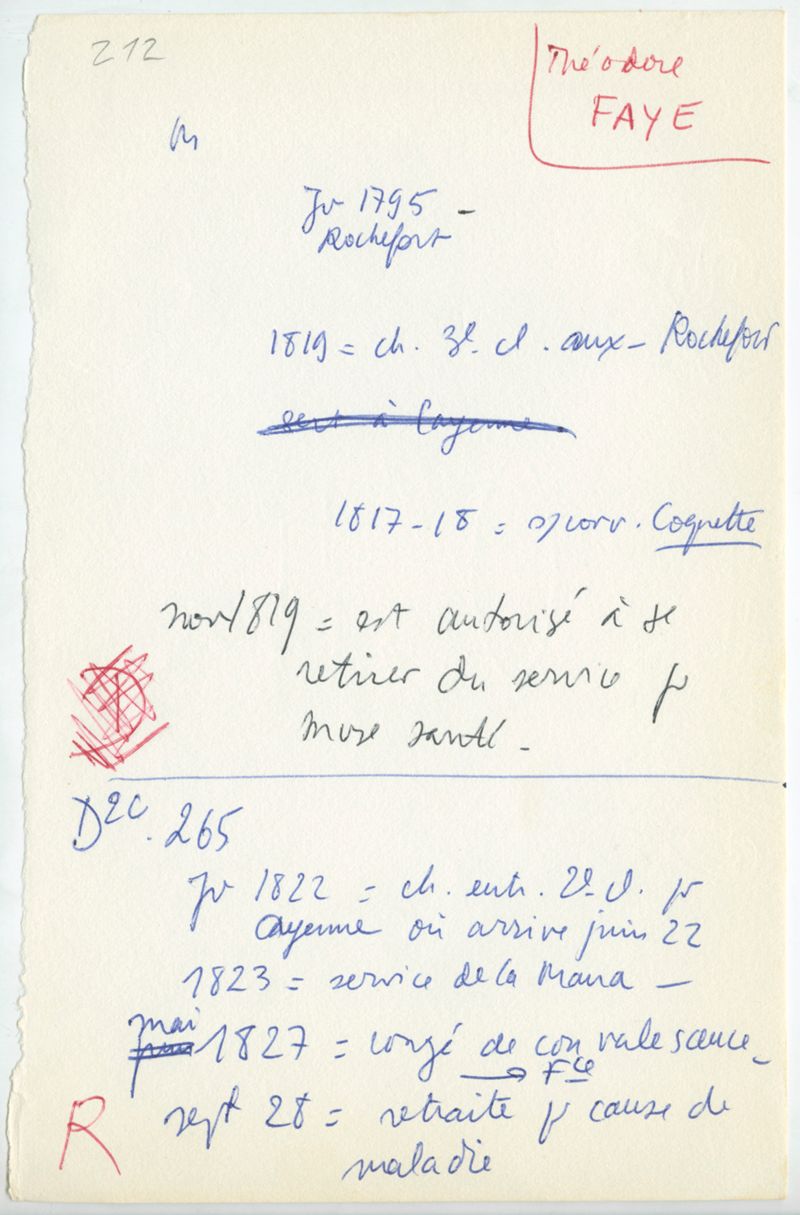 212
Théodore
FAYE
Jv 1795 -
Rochefort
1819 = ch. 3e cl. aux - Rochefort
sert à Cayenne
1817-18 = s/corv. Coquette
nov 1819 = est autorisé à se
retirer du service pr
mvse santé -
D2c. 265
Jv 1822 = ch. entr. 2e cl. pr
Cayenne où arrive juin 22
1823 = service de la Mana -
mai
juin 1827 = congé de convalescence -
→ Fce
R sept 28 = retraite pr cause de
maladie